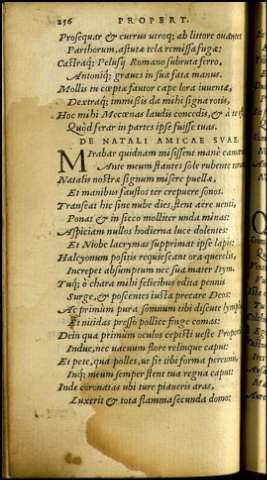 256 PROPERT.
Prosequar & currus utroq; ab littore ouantes
Parthorum, astutæ tela remissa fugæ:
Castraq; Pelusij Romano subruta ferro,
Antonijq; graues in sua fata manus.
Mollis tu cœptæ fautor cape lora iuuentæ,
Dextraq; immissis da mihi signa rotis,
Hoc mihi Mœcœnas laudis concedis, & à te
Quòd ferar in partes ipse fuisse tuas.
DE NATALI AMICAE SVAE.
Mirabar quidnam misissent manè
Ante meum stantes sole rubente
Natalis nostræ signum misere puellæ,
Et manibus faustos ter crepuere sonos.
Transeat hic sine nube dies, stent aëre venti,
Ponat & in sicco molliter unda minas:
Aspiciam nullos hodierna luce dolentes:
Et Niobe lacrymas supprimat ipse lapis:
Halcyonum positis requiescant ora querelis,
Increpet absumptum nec sua mater Itym.
Tuq; ô chara mihi felicibus edita pennis
Surge, & poscentes iusta precare Deos:
Ac primùm pura somnum tibi discute lymph
Et nitidas presso pollice finge comas:
Dein qua primùm oculos cepisti ueste Properti
Indue, nec uacuum flore relinque caput:
Et pete, qua polles, ut sit tibi forma perennis,
Inq; meum semper stent tua regna caput:
Inde coronatas ubi ture piaueris aras,
Luxerit & tota flamma secunda domo: